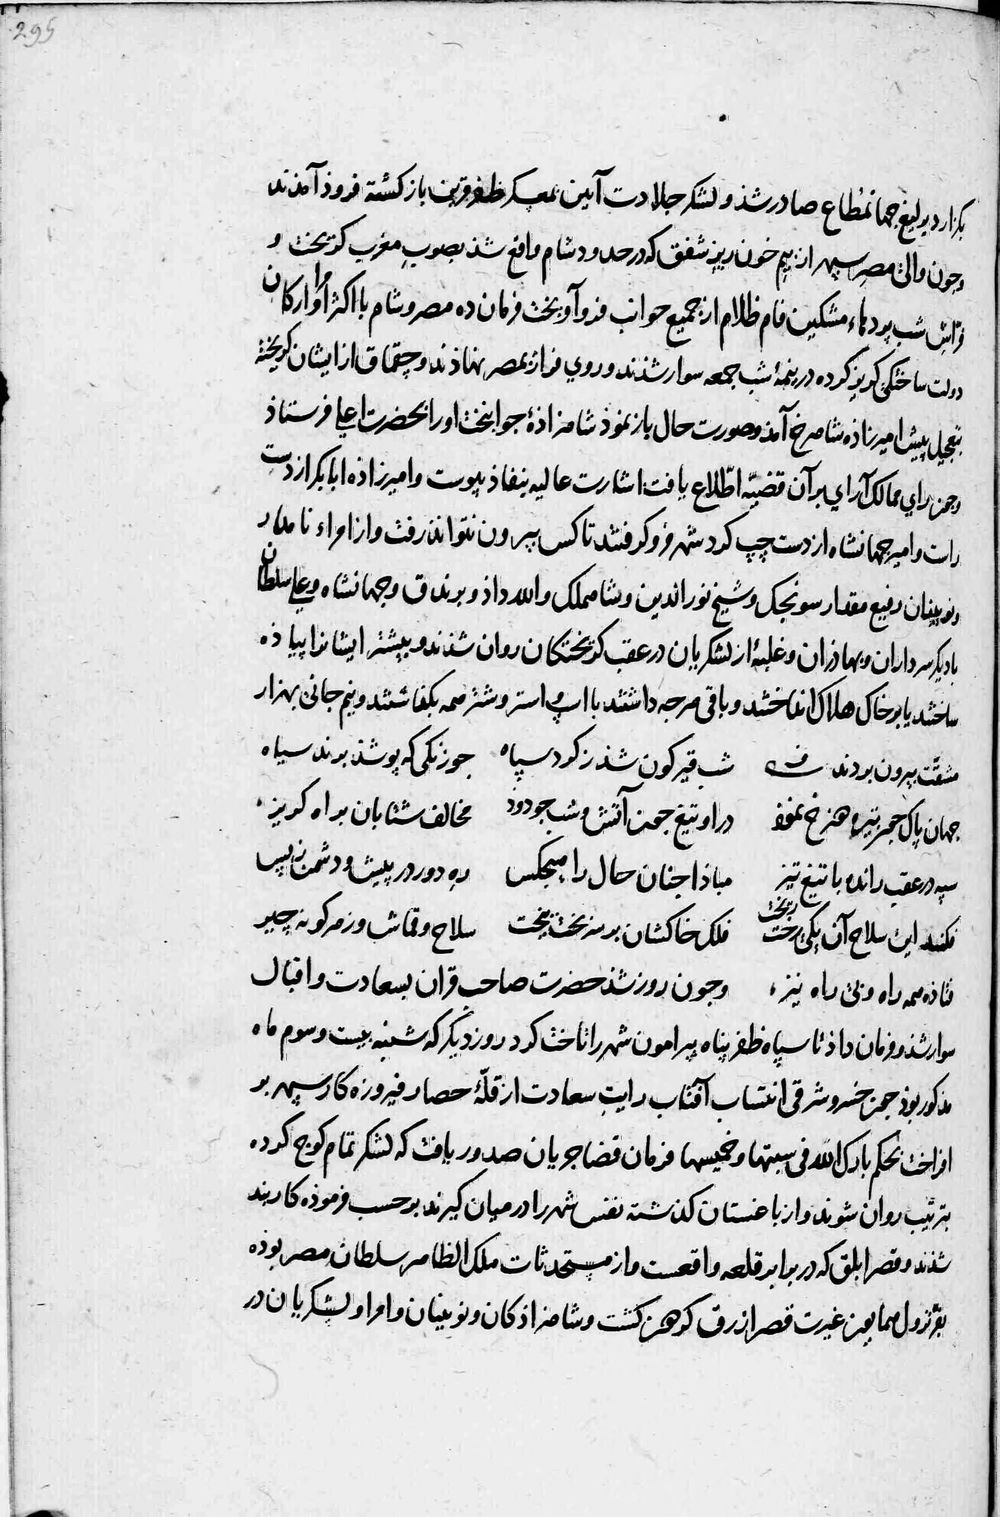 295
بگزارد یرلیغ جهانمطاع صادر شذ و لشکر جلادت آیین بمعسکر ظفر قرین باز کشته فروذ آمذند
وجون والی مصر سپهر از بیم خون ریز شفق که در حدود شام واقع شذ بصوب مغرب کریخت و
فرّاش شب پردهاء مشکین فام ظلام از جمیع جوانب فروآویخت فرمان ده مصر و شام با اکثر امرا و ارکان
دولت ساختکی کریز کرده در نیمهٔ شب جمعه سوار شذند و روی فرار بمصر نهاذند و چقماق از ایشان کریخته
بتعجیل پیش امیرزاذه شاهرخ آمذ و صورت حال باز نموذ شاهزاذهٔ جوانبخت او را بحضرت اعلی فرستاذ
وجون رای ممالک آرای بر آن قضیّه اطّلاع یافت اشارت عالیه بنفاذ پیوست و امیرزاذه ابابکر از دست
راست و امیر جهانشاه از دست چپ کرد شهر فرو کرفتند تا کس بیرون نتواند رفت و از امراء نامدار
ونویینان رفیع مقدار سونجک و شیخ نورالدین و شاهملک و الله داذ و برندق و جهانشاه و علی سلطان
با دیکر سرداران و بهاذران و غلبهٔ از لشکریان در عقب کریختکان روان شذند و بیشتر ایشانرا پیاذه
ساختند یا بر خاک هلاک انداختند و باقی هرجه داشتند با اسپ و استر و شتر همه بکذاشتند و نیم جانی بهزار
مشقّت بیرون بردند شب قیرکون شذ ز کرد سپاه جو زنکی که پوشذ پرند سیاه
جهان پاک جهر تیره هنرخ نموذ در او تیغ جون آتش و شب جو دود مخالف شتابان براه کریز
سپه در عقب رانده با تیغ تیز مباذا جنان حال را هیچکس ره دور در پیش و دشمن ز پس
فکند این سلاح آن یکی رخت ریخت فلک خاکشان بر سر بخت بیخت سلاح و قماش و ز هر کونه چیز
فتاذه همه راه و بی راه نیز وجون روز شذ حضرت صاحب قران بسعادت و اقبال
سوار شذ و فرمان داذ تا سپاه ظفر پناه پیرامون شهر را تاخت کرد روز دیکر که شنبه بیست و سوم ماه
مذکور بوذ جون خسرو شرقی انتساب آفتاب رایت سعادت از قلّهٔ حصار فیروزه کار سپهر بر
افراخت بحکم بارک الله فی سبتها و خمیسها فرمان قضا جریان صدور یافت که لشکر تمام کوج کرده
بترتیب روان شوند و از باغستان کذشته نفس شهر را در میان کیرند بر حسب فرموذه کاربند
شذند و قصر ابلق که در برابر قلعه واقعست و از مستحدثات ملک الظاهر سلطان مصر بوذه
بفرّ نزول همایون غیرت قصر ازرق کردون کشت و شاهزاذکان و نویینان و امرا و لشکریان در